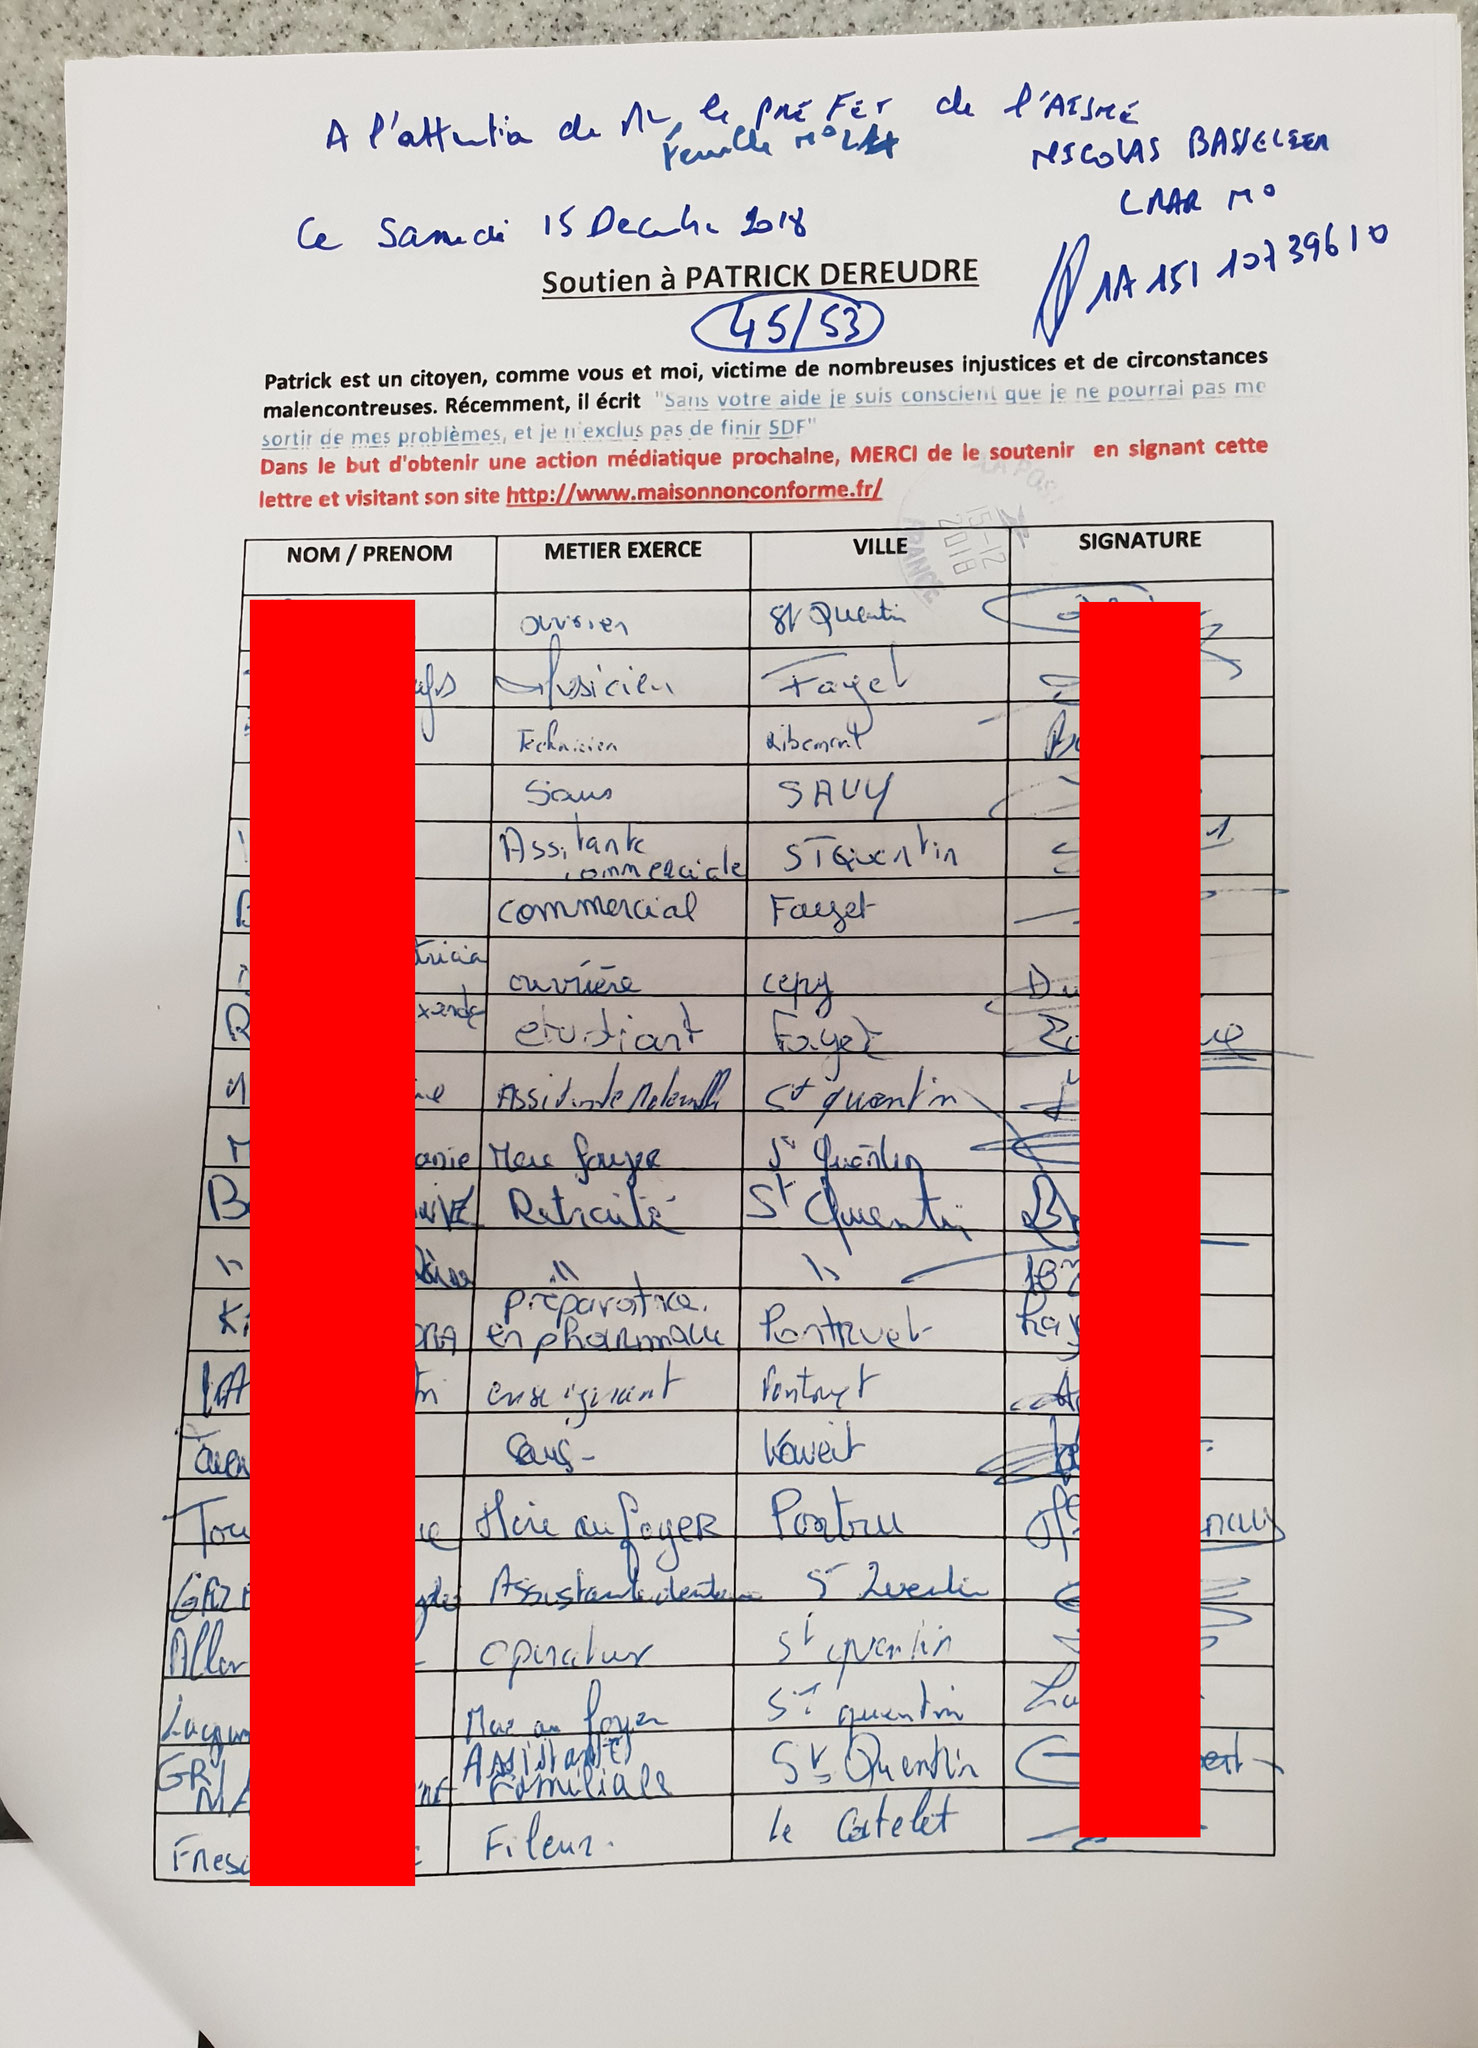 A l'attention de Mr le PREFET de l'AISNE
Feuille N°
NICOLAS BASSELIER
Ce Samedi 15 Decembre 2018
LRAR N°
1A 151 107 3961 0
Soutien à PATRICK DEREUDRE
45/53
Patrick est un citoyen, comme vous et moi, victime de nombreuses injustices et de circonstances
malencontreuses. Récemment, il écrit "Sans votre aide je suis conscient que je ne pourrai pas me
sortir de mes problèmes, et je n'exclus pas de finir SDF"
Dans le but d'obtenir une action médiatique prochaine, MERCI de le soutenir en signant cette
lettre et visitant son site http://www.maisonnonconforme.fr/
LA POSTE
15-12
2018
FRANCE
NOM / PRENOM METIER EXERCE VILLE SIGNATURE
ouvrier St Quentin
Musicien Fayet
Technicien Ribemont
Sans SAVY
Assistante commerciale ST Quentin
B commercial Fayet
tricia ouvrière cepy Du
R xandre etudiant Fayet
Assistante Maternelle St quentin
M anie Mere foyer St Quentin
B Retraité St Quentin B
" " "
Ki ORA préparatrice en pharmacie Pontruet
enseignant Pontruet
Sans - Koweit
Tou Mère au foyer Pontru
GRZ Assistante dentaire St Quentin
Allar operateur St quentin
Lacqu Mere au foyer ST quentin La
GRI MA INE Assistante Familiale St Quentin bert
Fres Fileur. Le Catelet